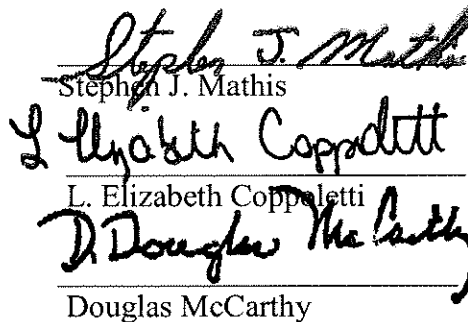 Stephen J. Mathis
Stephen J. Mathis
L Elizabeth Coppoletti
L. Elizabeth Coppoletti
D. Douglas McCarthy
Douglas McCarthy